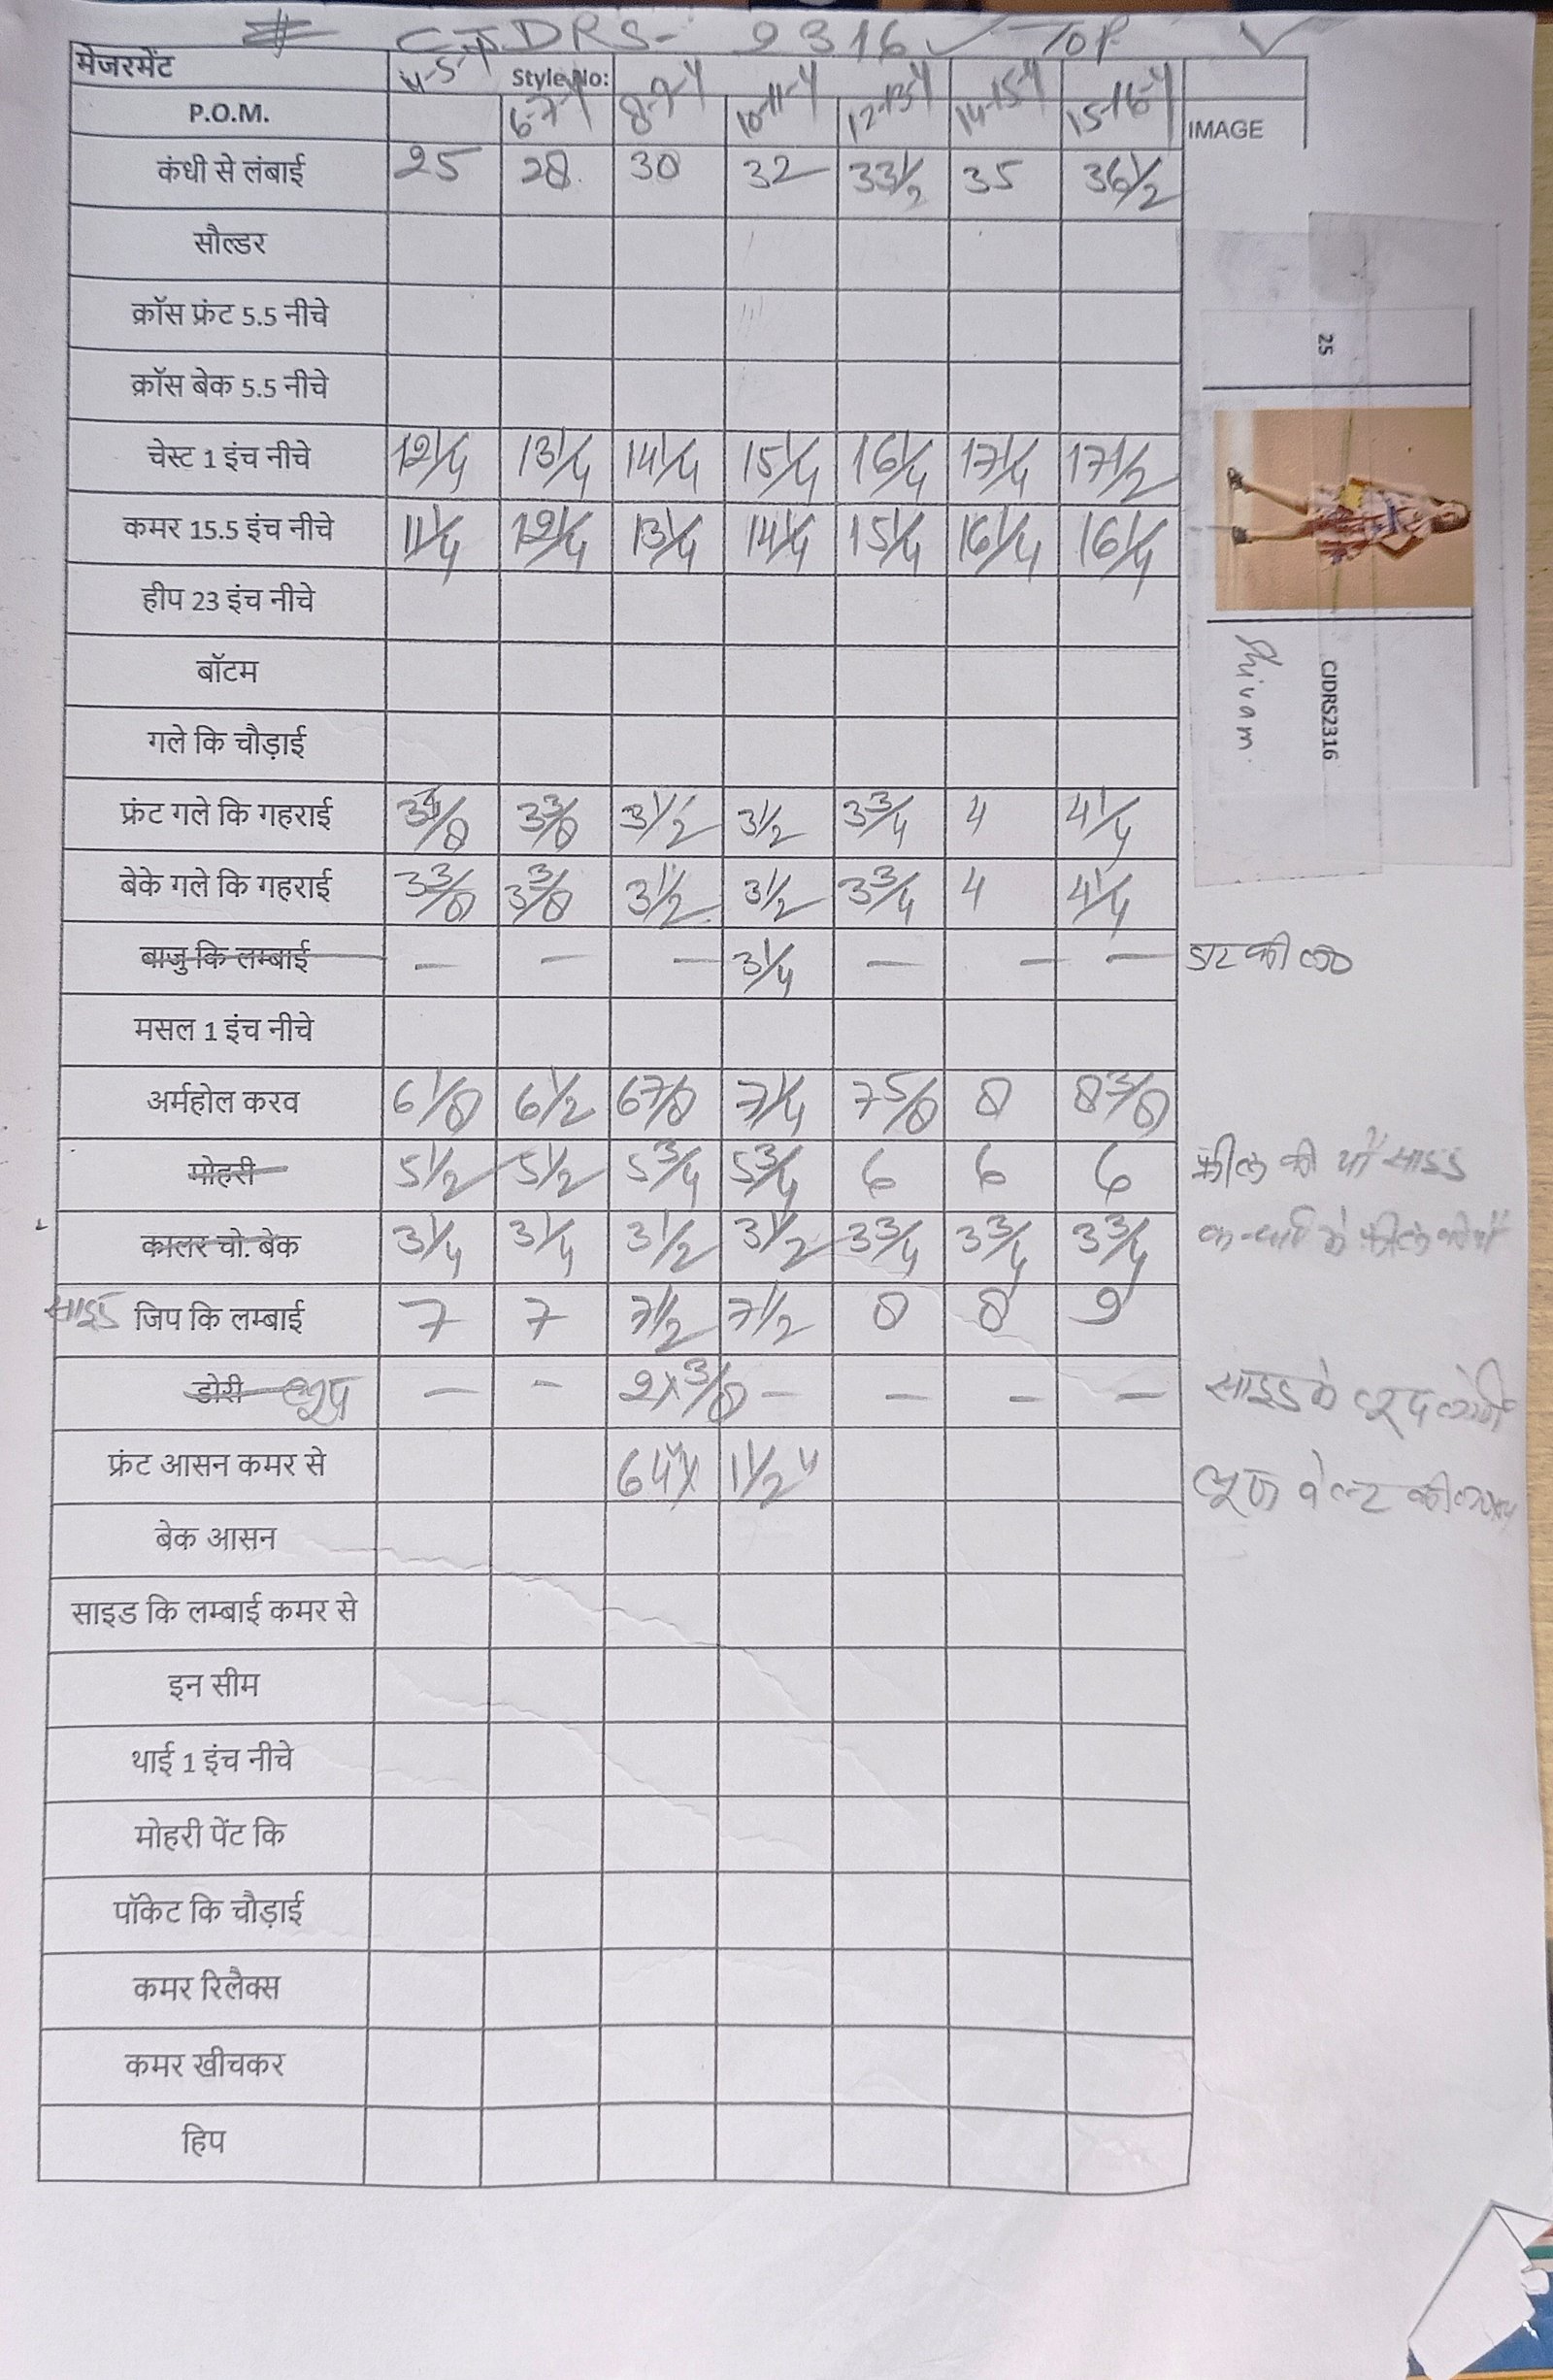 # CJDRS- 2316 ✓ TOP ✓
मेजरमेंट 4-5-Y Style No:
P.O.M. 6-7-Y 8-9-Y 10-11-Y 12-13-Y 14-15-Y 15-16-Y IMAGE
कंधी से लंबाई 25 28 30 32 33 1/2 35 36 1/2
सौल्डर
क्रॉस फ्रंट 5.5 नीचे
25
क्रॉस बेक 5.5 नीचे
चेस्ट 1 इंच नीचे 12 1/4 13 1/4 14 1/4 15 1/4 16 1/4 17 1/4 17 1/2
कमर 15.5 इंच नीचे 11 1/4 12 1/4 13 1/4 14 1/4 15 1/4 16 1/4 16 1/4
हीप 23 इंच नीचे
बॉटम
Shivam
CJDRS2316
गले कि चौड़ाई
फ्रंट गले कि गहराई 3 3/8 3 3/8 3 1/2 3 1/2 3 3/4 4 4 1/4
बेके गले कि गहराई 3 3/8 3 3/8 3 1/2 3 1/2 3 3/4 4 4 1/4
बाजु कि लम्बाई — — — 3 1/4 — — — डाट की
मसल 1 इंच नीचे
अर्महोल करव 6 1/8 6 1/2 6 7/8 7 1/4 7 5/8 8 8 3/8
मोहरी 5 1/2 5 1/2 5 3/4 5 3/4 6 6 6 फ्रील की चौ साइड
कालर चो. बेक 3 1/4 3 1/4 3 1/2 3 1/2 3 3/4 3 3/4 3 3/4
साइड जिप कि लम्बाई 7 7 7 1/2 7 1/2 8 8 9
डोरी लूप — — 2 x 3/8 — — — — साइड के लूप
फ्रंट आसन कमर से 64" x 1 1/2" लूज बेल्ट की
बेक आसन
साइड कि लम्बाई कमर से
इन सीम
थाई 1 इंच नीचे
मोहरी पेंट कि
पॉकेट कि चौड़ाई
कमर रिलैक्स
कमर खीचकर
हिप